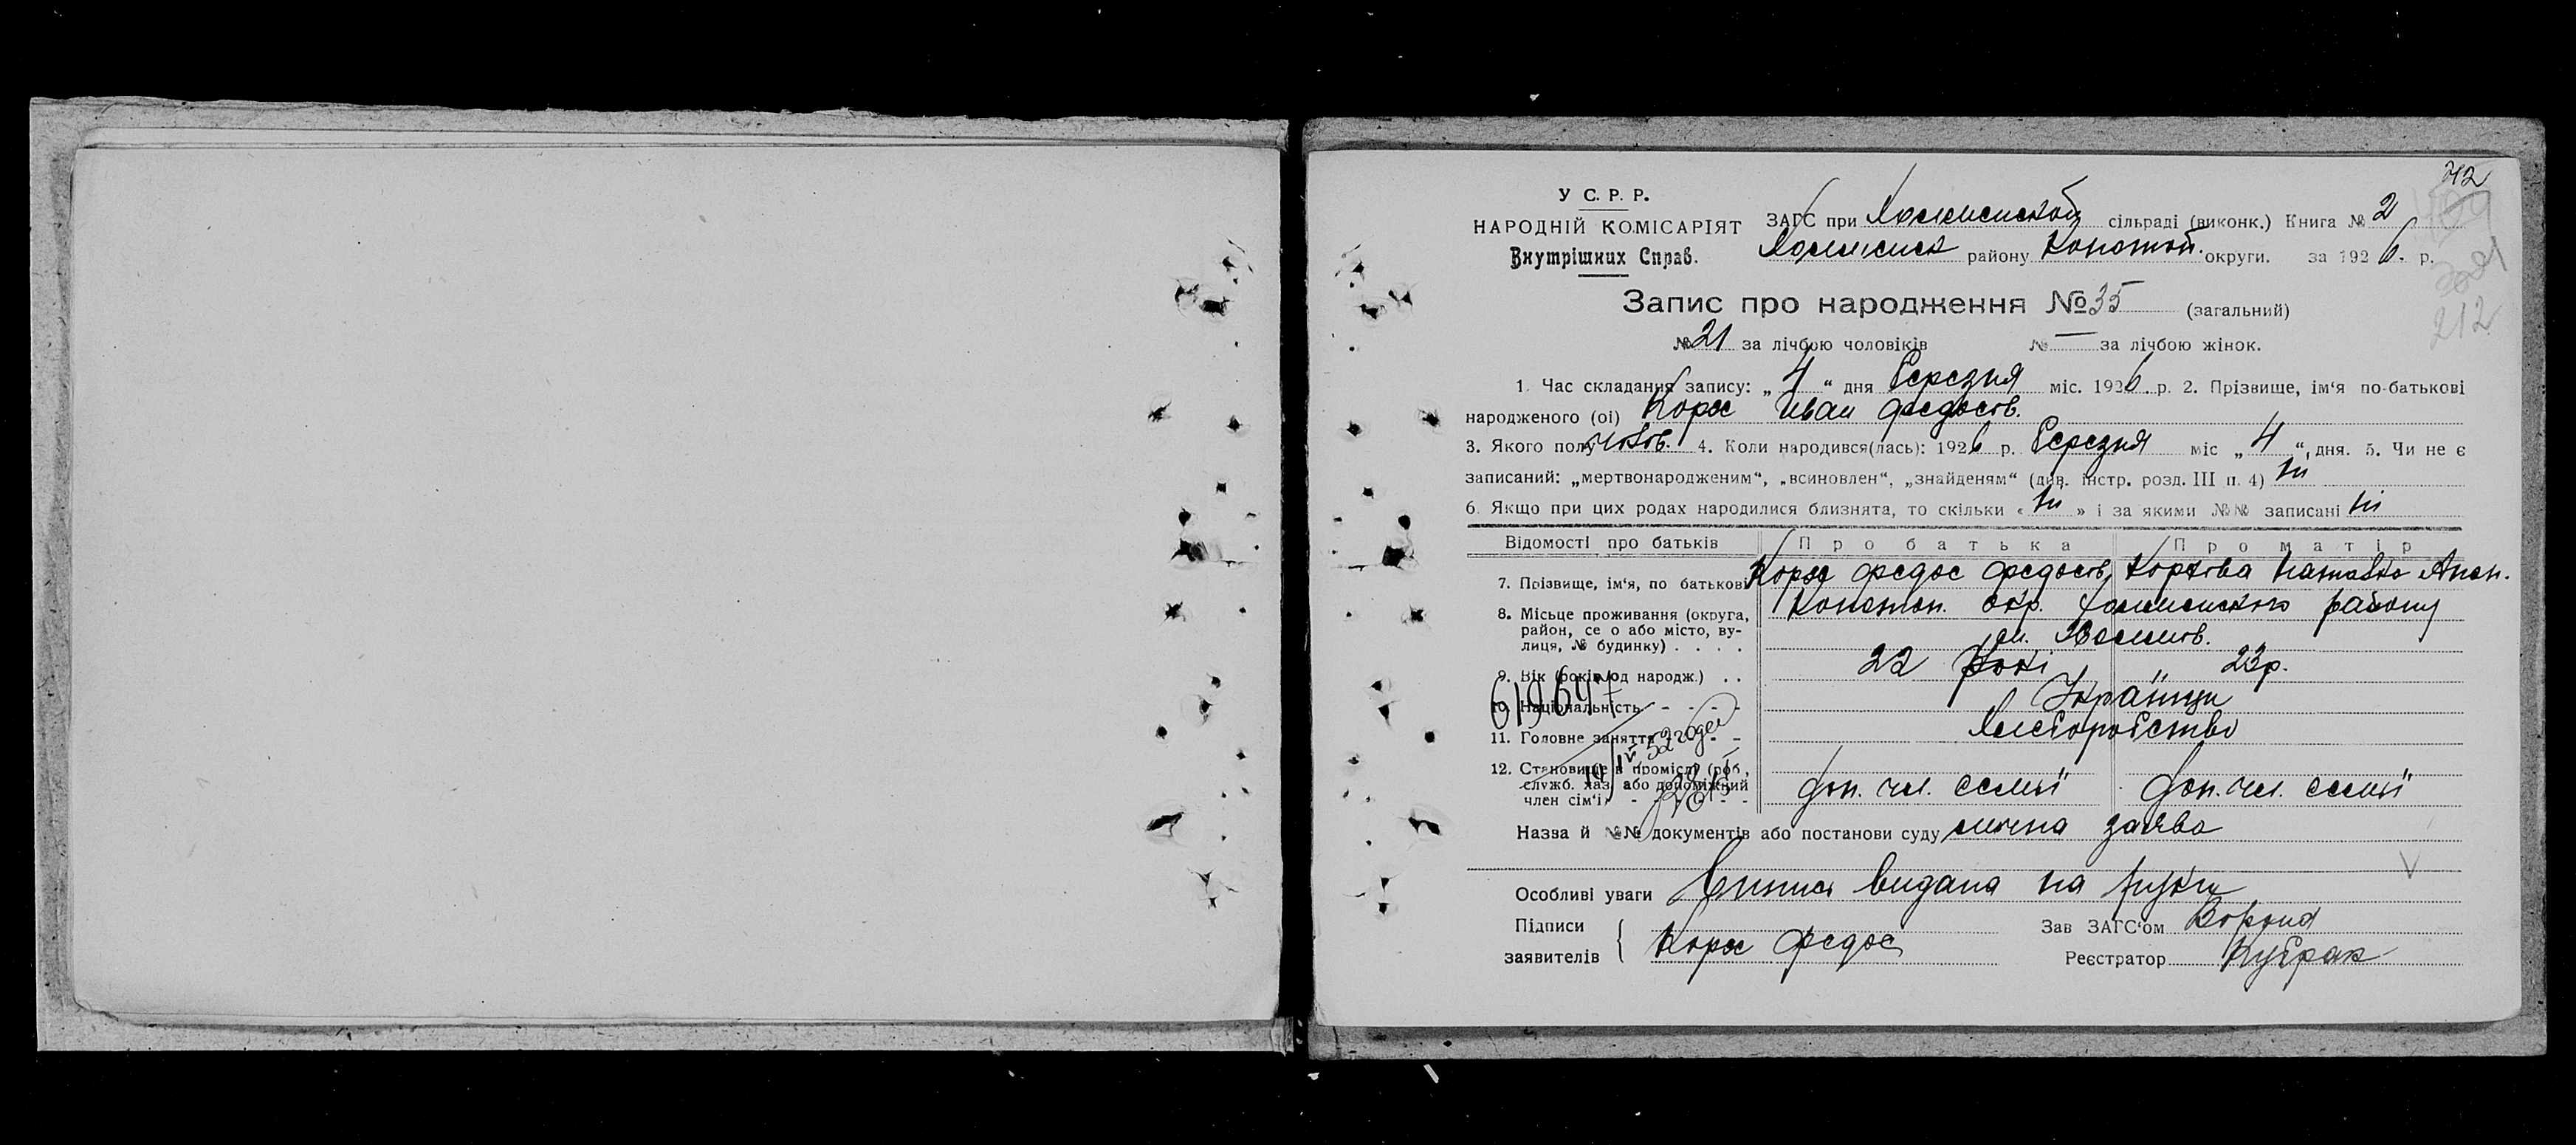 212
У С. Р. Р.
НАРОДНІЙ КОМІСАРІЯТ
Внутрішних Справ.
ЗАГС при Хоминской сільраді (виконк.) Книга № 2
району Конотоп. округи. за 1926. р.
212
Запис про народження № 35 (загальний)
№ 21 за лічбою чоловіків № — за лічбою жінок.
1. Час складання запису: „ 4 “ дня Березня міс. 1926 р. 2. Прізвище, ім‘я по-батькові
народженого (ої) Корж Иван Федосів.
3. Якого полу чолов. 4. Коли народився(лась): 1926 р. Березня міс „ 4 “, дня. 5. Чи не є
записаний: „мертвонародженим“, „всиновлен“, „знайденям“ (див. інстр. розд. III п. 4) Ні
6. Якщо при цих родах народилися близнята, то скільки « Ні » і за якими №№ записані Ні
Відомості про батьків Про батька Про матір
7. Прізвище, ім‘я, по батькові Корж Федос Федосів, Коржова Наталка
8. Місьце проживання (округа, район, се о або місто, вулиця, № будинку) . . . . Конотоп. окр. району
9. Вік (років од народж.) . . 22 Рокі 23 р.
619697
10. Національність - - - - Українци
11. Головне заняття - - Хлєборобство
12. Становище в промислі (роб., служб. хаз. або допоміжний член сім‘ї) - - - - доп. чл. семьї доп. чл. семьї
Назва й №№ документів або постанови суду лична заява
Особливі уваги Випись видана на руки
Підписи
заявителів Корж Федос
Зав ЗАГС‘ом Ворона
Реєстратор Кубрак